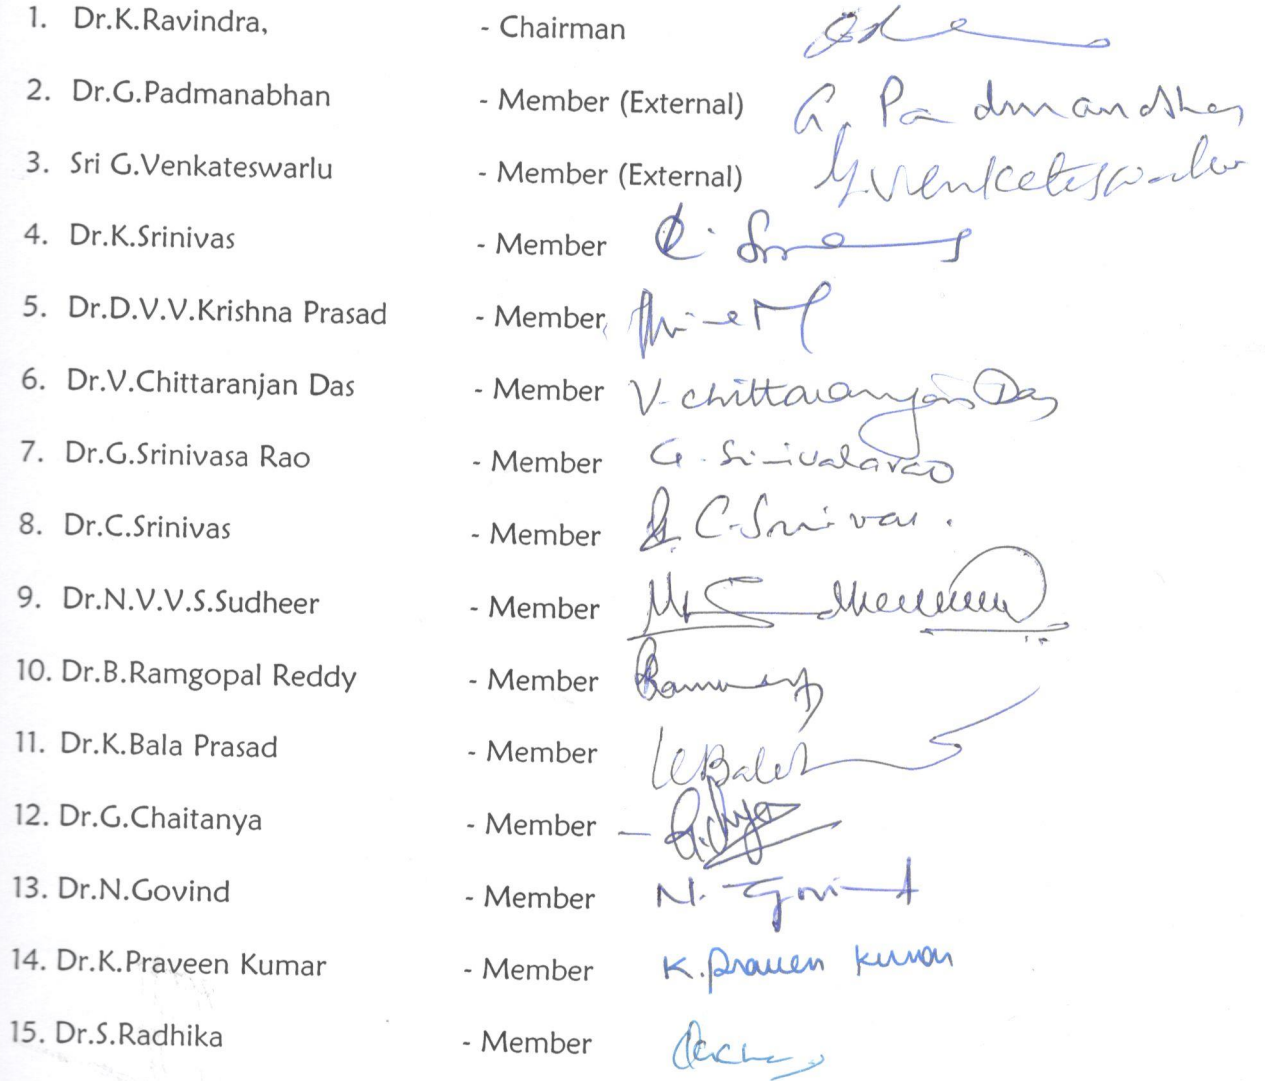 1. Dr.K.Ravindra, - Chairman
2. Dr.G.Padmanabhan - Member (External) G. Padmanabhan
3. Sri G.Venkateswarlu - Member (External) G.Venkateswarlu
4. Dr.K.Srinivas - Member
5. Dr.D.V.V.Krishna Prasad - Member
6. Dr.V.Chittaranjan Das - Member V. Chittaranjan Das
7. Dr.G.Srinivasa Rao - Member G. Srinivasarao
8. Dr.C.Srinivas - Member C. Srinivas.
9. Dr.N.V.V.S.Sudheer - Member
10. Dr.B.Ramgopal Reddy - Member
11. Dr.K.Bala Prasad - Member
12. Dr.G.Chaitanya - Member
13. Dr.N.Govind - Member N. Govind
14. Dr.K.Praveen Kumar - Member K. Praveen Kumar
15. Dr.S.Radhika - Member